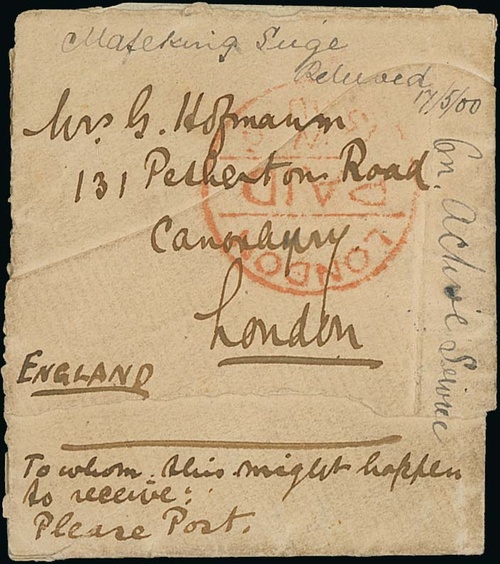 Mafeking Siege
Relieved
17/5/00
Mrs G. Hofmann
131 Petherton Road.
Canonbury.
London
ENGLAND
On Active Service
PAID
LONDON
To whom this might happen
to receive:
Please Post.